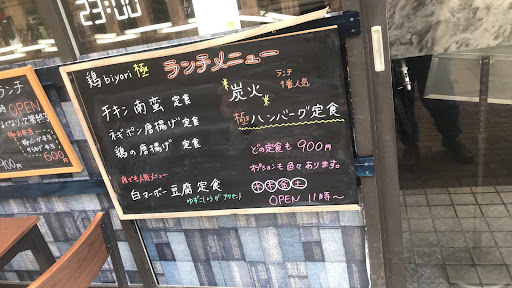 23:00
鶏biyori極 ランチメニュー
チキン南蛮 定食
ネギポン唐揚げ 定食
鶏の唐揚げ 定食
何でも人気メニュー
白マーボー豆腐定食
ゆずこしょうがアクセント
ランチ
1番人気
炭火
極ハンバーグ定食
どの定食も 900円
オプションも色々あります。
水木金土
OPEN 11時〜
ランチ
OPEN
900円
600円